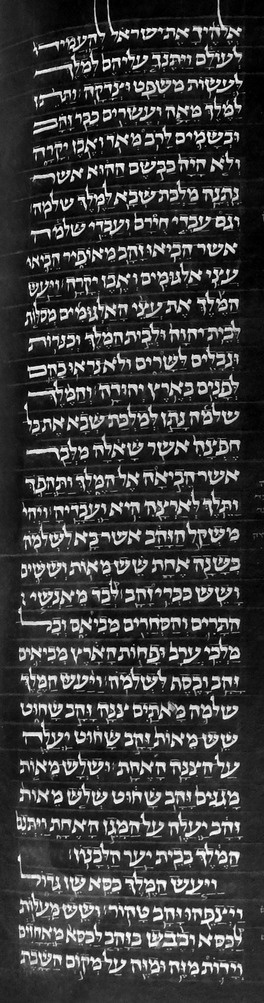 אלהיך את ישראל להעמידו
לעולם ויתנך עליהם למלך
לעשות משפט וצדקה ותתן
למלך מאה ועשרים ככר זהב
ובשמים לרב מאד ואבן יקרה
ולא היה כבשם ההוא אשר
נתנה מלכת שבא למלך שלמה
וגם עבדי חורם ועבדי שלמה
אשר הביאו זהב מאופיר הביאו
עצי אלגומים ואבן יקרה ויעש
המלך את עצי האלגומים מסלות
לבית יהוה ולבית המלך וכנרות
ונבלים לשרים ולא נראו כהם
לפנים בארץ יהודה והמלך
שלמה נתן למלכת שבא את כל
חפצה אשר שאלה מלבד
אשר הביאה אל המלך ותהפך
ותלך לארצה היא ועבדיה ויהי
משקל הזהב אשר בא לשלמה
בשנה אחת שש מאות וששים
ושש ככרי זהב לבד מאנשי
התרים והסחרים מביאם וכל
מלכי ערב ופחות הארץ מביאים
זהב וכסף לשלמה ויעש המלך
שלמה מאתים צנה זהב שחוט
שש מאות זהב שחוט יעלה
על הצנה האחת ושלש מאות
מגנים זהב שחוט שלש מאות
זהב יעלה על המגן האחת ויתנם
המלך בבית יער הלבנון
ויעש המלך כסא שן גדול
ויצפהו זהב טהור ושש מעלות
לכסא וכבש בזהב לכסא מאחזים
וידות מזה ומזה על מקום השבת